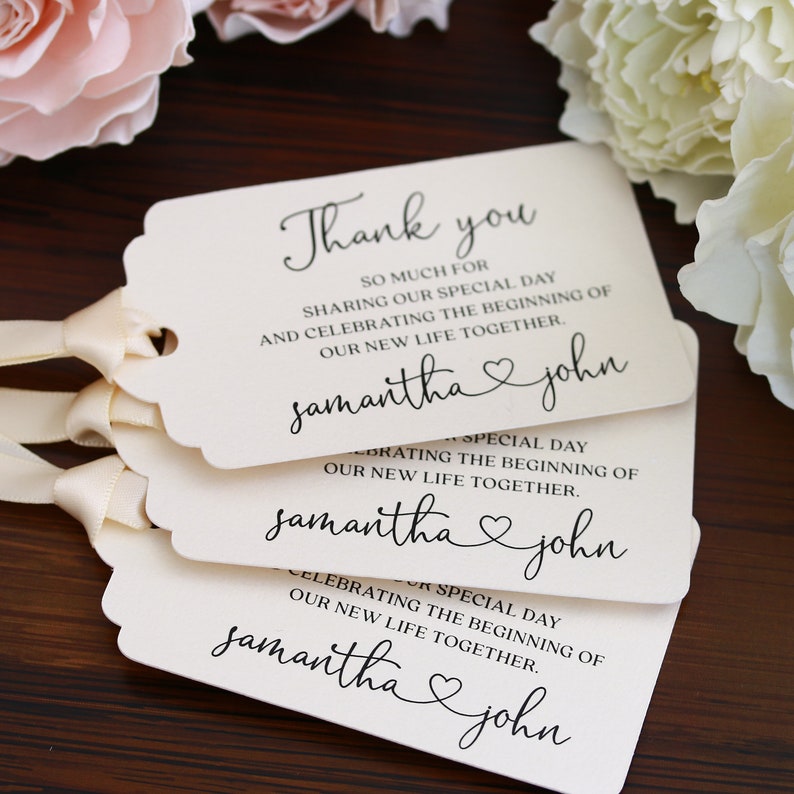 Thank you
SO MUCH FOR
SHARING OUR SPECIAL DAY
AND CELEBRATING THE BEGINNING OF
OUR NEW LIFE TOGETHER.
samantha♡john
SPECIAL DAY
THE BEGINNING OF
OUR NEW LIFE TOGETHER.
samantha♡john
OUR SPECIAL DAY
CELEBRATING THE BEGINNING OF
OUR NEW LIFE TOGETHER.
samantha♡john